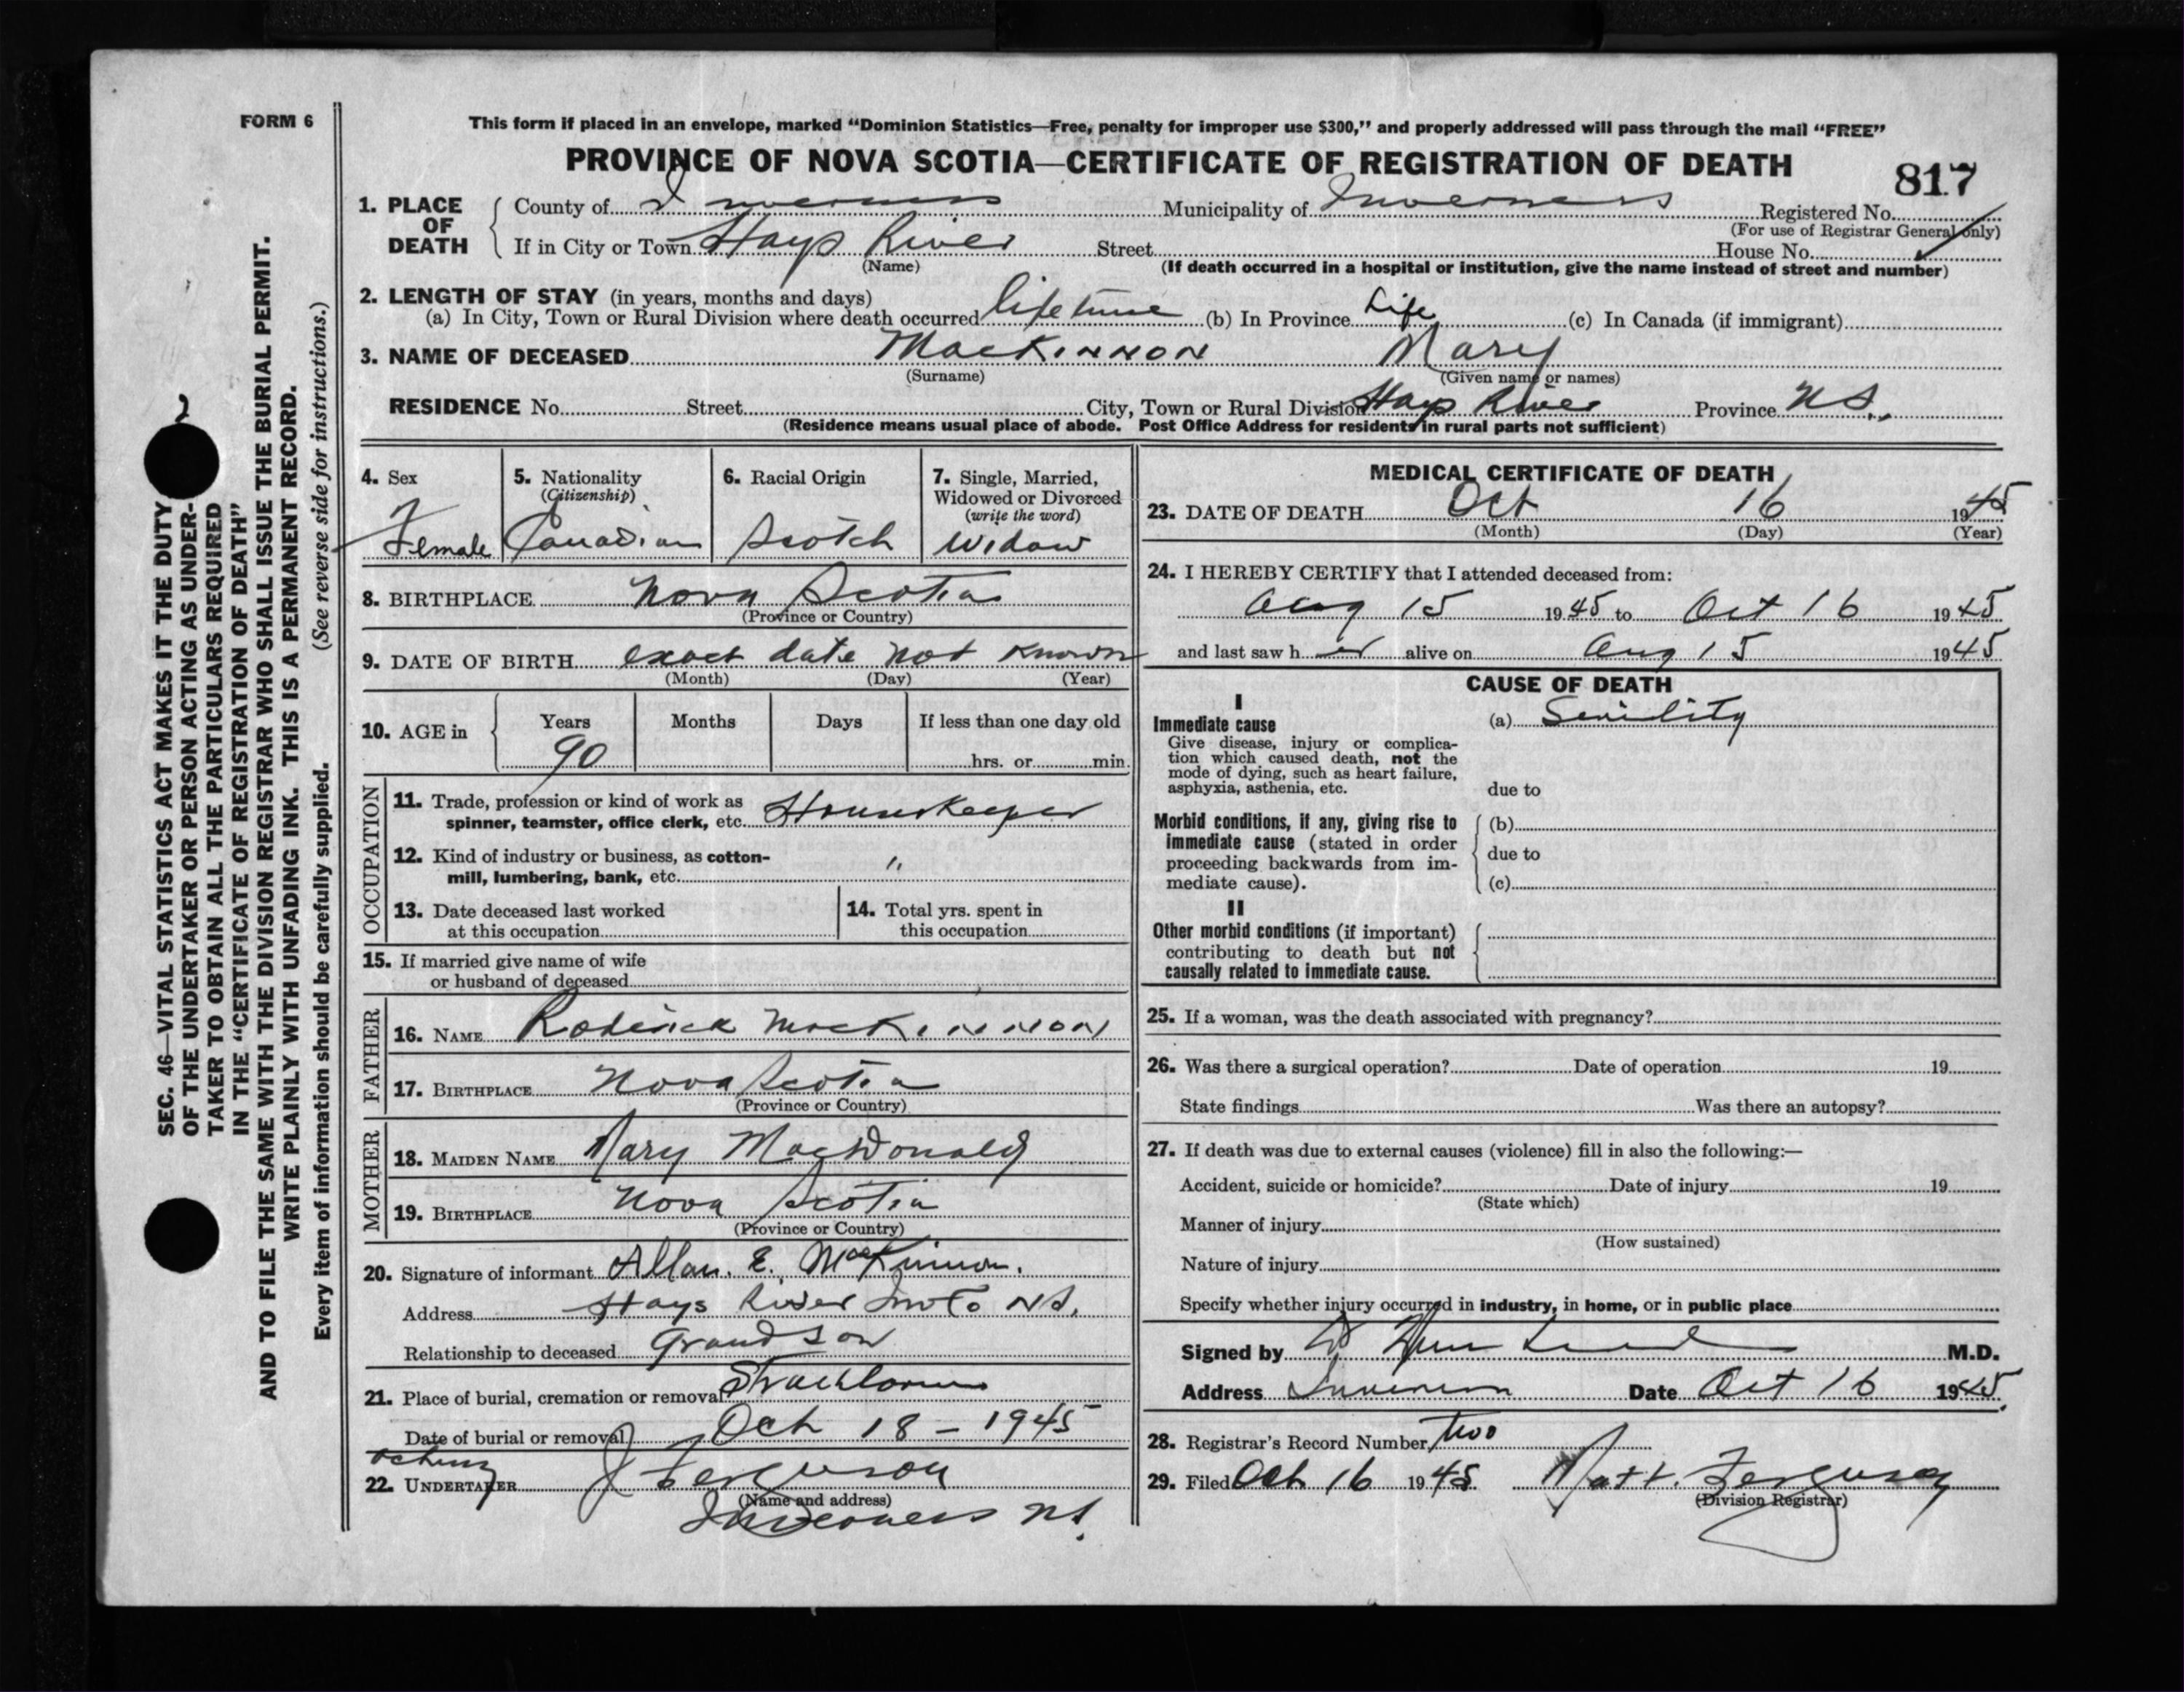 FORM 6
This form if placed in an envelope, marked “Dominion Statistics—Free, penalty for improper use $300,” and properly addressed will pass through the mail “FREE”
PROVINCE OF NOVA SCOTIA—CERTIFICATE OF REGISTRATION OF DEATH
817
1. PLACE OF DEATH
County of Inverness Municipality of Inverness Registered No.
(For use of Registrar General only)
If in City or Town Hays River Street House No.
(Name) (If death occurred in a hospital or institution, give the name instead of street and number)
2. LENGTH OF STAY (in years, months and days)
(a) In City, Town or Rural Division where death occurred lifetime (b) In Province Life (c) In Canada (if immigrant)
3. NAME OF DECEASED MacKinnon Mary
(Surname) (Given name or names)
RESIDENCE No. Street City, Town or Rural Division Hays River Province N.S.
(Residence means usual place of abode. Post Office Address for residents in rural parts not sufficient)
4. Sex
Female
5. Nationality
(Citizenship)
Canadian
6. Racial Origin
Scotch
7. Single, Married,
Widowed or Divorced
(write the word)
Widow
8. BIRTHPLACE Nova Scotia
(Province or Country)
9. DATE OF BIRTH exact date not known
(Month) (Day) (Year)
10. AGE in
Years Months Days If less than one day old
90 hrs. or min.
OCCUPATION
11. Trade, profession or kind of work as
spinner, teamster, office clerk, etc. Housekeeper
12. Kind of industry or business, as cotton-
mill, lumbering, bank, etc. "
13. Date deceased last worked
at this occupation
14. Total yrs. spent in
this occupation
15. If married give name of wife
or husband of deceased
FATHER
16. NAME Roderick MacKinnon
17. BIRTHPLACE Nova Scotia
(Province or Country)
MOTHER
18. MAIDEN NAME Mary MacDonald
19. BIRTHPLACE Nova Scotia
(Province or Country)
20. Signature of informant Allan. E. MacKinnon.
Address Hays River Inv Co N.S.
Relationship to deceased Grandson
21. Place of burial, cremation or removal Strathlorne
Date of burial or removal Oct 18 - 1945
Acting
22. UNDERTAKER J Ferguson
(Name and address)
Inverness N.S.
MEDICAL CERTIFICATE OF DEATH
23. DATE OF DEATH Oct 16 1945
(Month) (Day) (Year)
24. I HEREBY CERTIFY that I attended deceased from:
Aug 15 1945 to Oct 16 1945
and last saw her alive on Aug 15 1945
CAUSE OF DEATH
I
Immediate cause
Give disease, injury or complica-
tion which caused death, not the
mode of dying, such as heart failure,
asphyxia, asthenia, etc.
(a) Senility
due to
Morbid conditions, if any, giving rise to
immediate cause (stated in order
proceeding backwards from im-
mediate cause).
(b)
due to
(c)
II
Other morbid conditions (if important)
contributing to death but not
causally related to immediate cause.
25. If a woman, was the death associated with pregnancy?
26. Was there a surgical operation? Date of operation 19
State findings Was there an autopsy?
27. If death was due to external causes (violence) fill in also the following:—
Accident, suicide or homicide? Date of injury 19
(State which)
Manner of injury
(How sustained)
Nature of injury
Specify whether injury occurred in industry, in home, or in public place
Signed by M.D.
Address Inverness Date Oct 16 1945
28. Registrar's Record Number two
29. Filed Oct 16 1945 Matt. Ferguson
(Division Registrar)
SEC. 46—VITAL STATISTICS ACT MAKES IT THE DUTY
OF THE UNDERTAKER OR PERSON ACTING AS UNDER-
TAKER TO OBTAIN ALL THE PARTICULARS REQUIRED
IN THE “CERTIFICATE OF REGISTRATION OF DEATH”
AND TO FILE THE SAME WITH THE DIVISION REGISTRAR WHO SHALL ISSUE THE BURIAL PERMIT.
WRITE PLAINLY WITH UNFADING INK. THIS IS A PERMANENT RECORD.
Every item of information should be carefully supplied. (See reverse side for instructions.)
2